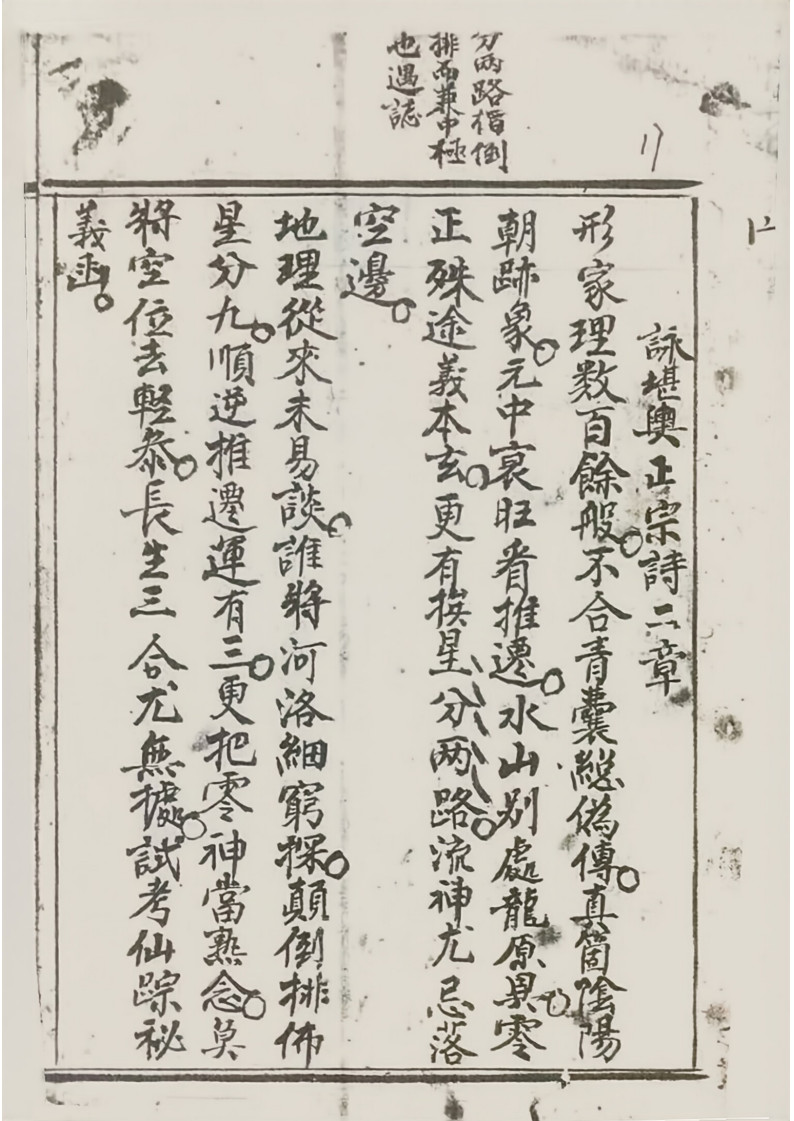 分两路指倒
排而兼中極
也遇誌
17
詠堪輿正宗詩二章
形家理数百餘般。不合青囊總偽傳。真箇陰陽
朝跡象。元中衰旺看推遷。水山别處龍原異。零
正殊途義本玄。更有挨星分两路。流神尤忌落
空邊。
地理從來未易談。誰將河洛細窮探。顛倒排佈
星分九。順逆推遷運有三。更把零神當熟念。莫
將空位去輕叅。長生三合尤無據。試考仙踪秘
義函。